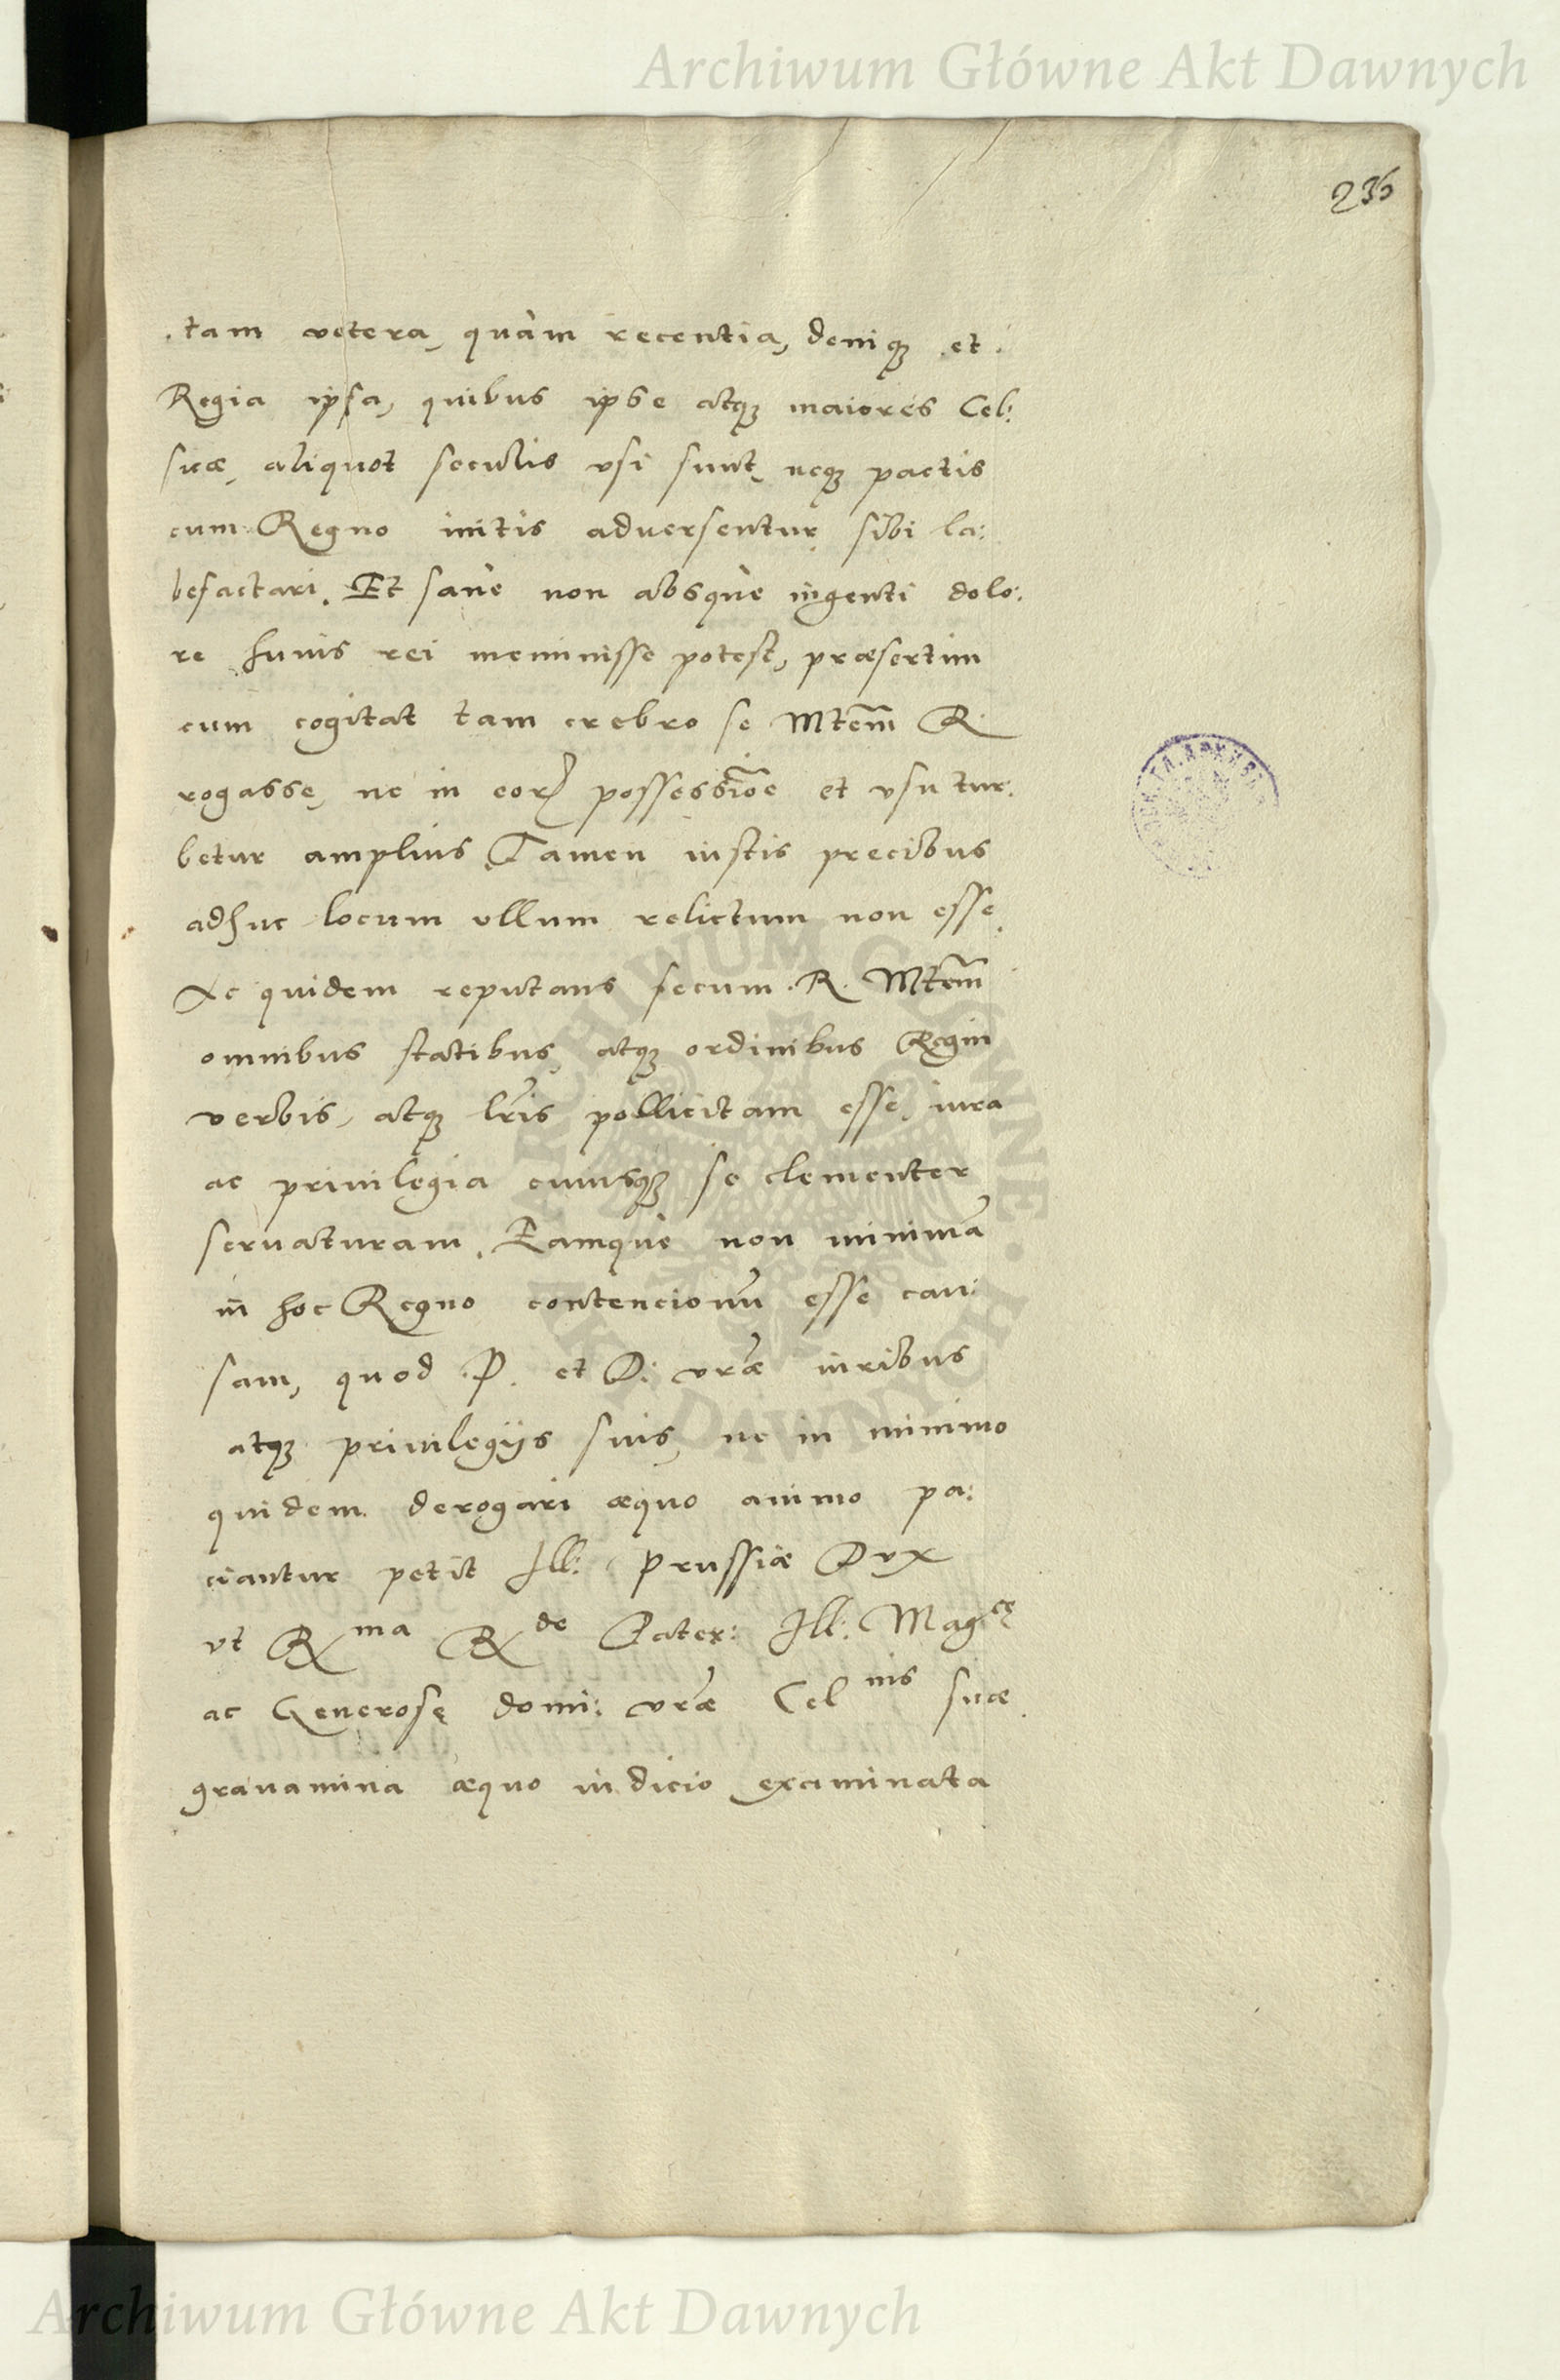 Archiwum Główne Akt Dawnych
236
tam vetera, quàm recentia, deniqꝫ et
Regia ipsa, quibus ipse atqꝫ maiores Cel:
suæ, aliquot seculis vsi sunt, neqꝫ pactis
cum Regno initis aduersentur sibi la:
befactari. Et sane non absque ingenti dolo:
re huius rei meminisse potest, præsertim
cum cogitat tam crebro se Mtem̃ R.
rogasse, ne in eorꝝ possessiõe et vsu tur:
betur amplius, Tamen iustis precibus
adhuc locum vllum relictum non esse.
Ac quidem reputans secum R. Mtem̃
omnibus statibus, atqꝫ ordinibus Regni
verbis, atqꝫ lr̃is pollicitam esse, iura
ac priuilegia cuiusqꝫ se clementer
seruaturam, Eamquè non minimã
in hoc Regno contencionũ esse cau:
sam, quod P. et D: vr̃æ iuribus
atqꝫ priuilegijs suis, ne in minimo
quidem derogari æquo animo pa:
ciantur petit Ill: Prussiæ Dux
vt R^ma R^de Pater: Ill: Mag^cę
ac Generosę domi: vr̃æ Cel^nis suæ
grauamina æquo iudicio examinata
ARCHIWUM GŁÓWNE AKT DAWNYCH
Archiwum Główne Akt Dawnych